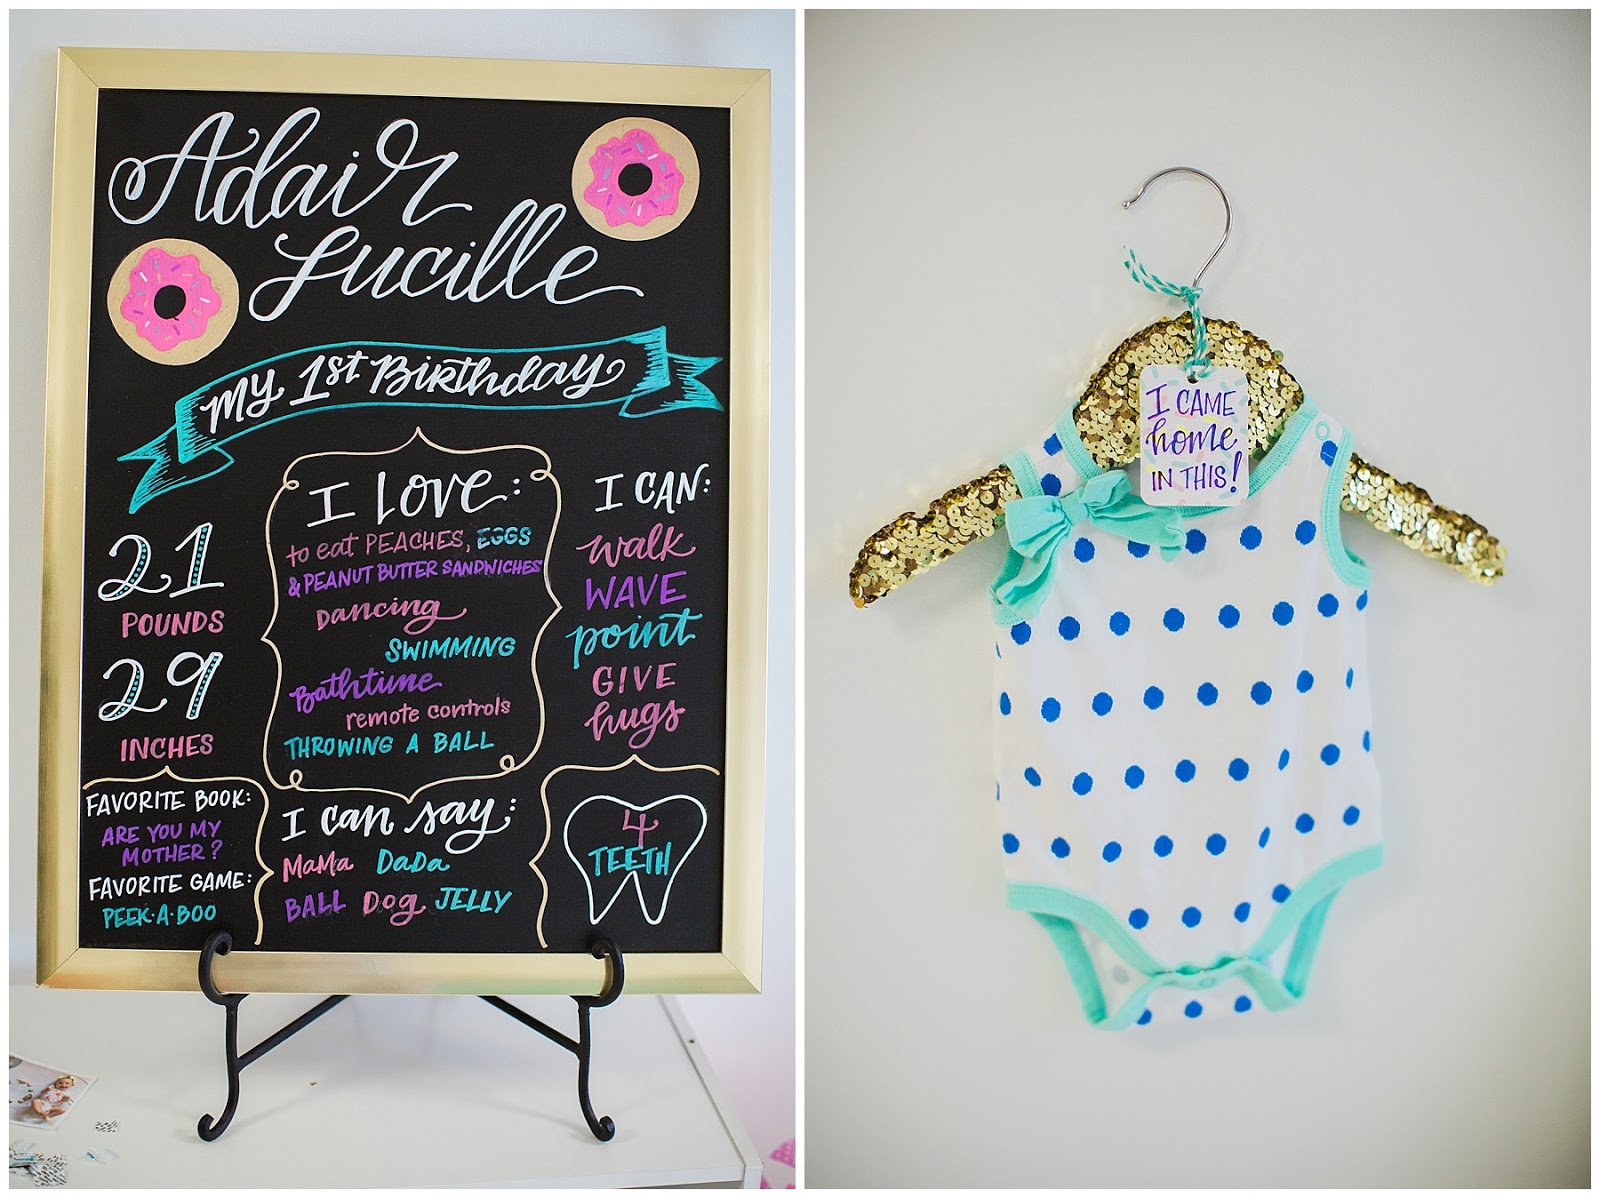 Adair
Lucille
My 1st Birthday
21
POUNDS
29
INCHES
I LOVE:
to eat PEACHES, EGGS
& PEANUT BUTTER SANDWICHES
Dancing
SWIMMING
Bathtime
remote controls
THROWING A BALL
I CAN:
walk
WAVE
point
GIVE
hugs
FAVORITE BOOK:
ARE YOU MY
MOTHER?
FAVORITE GAME:
PEEK·A·BOO
I can say:
MaMa DaDa
BALL Dog JELLY
4
TEETH
I CAME
home
IN THIS!